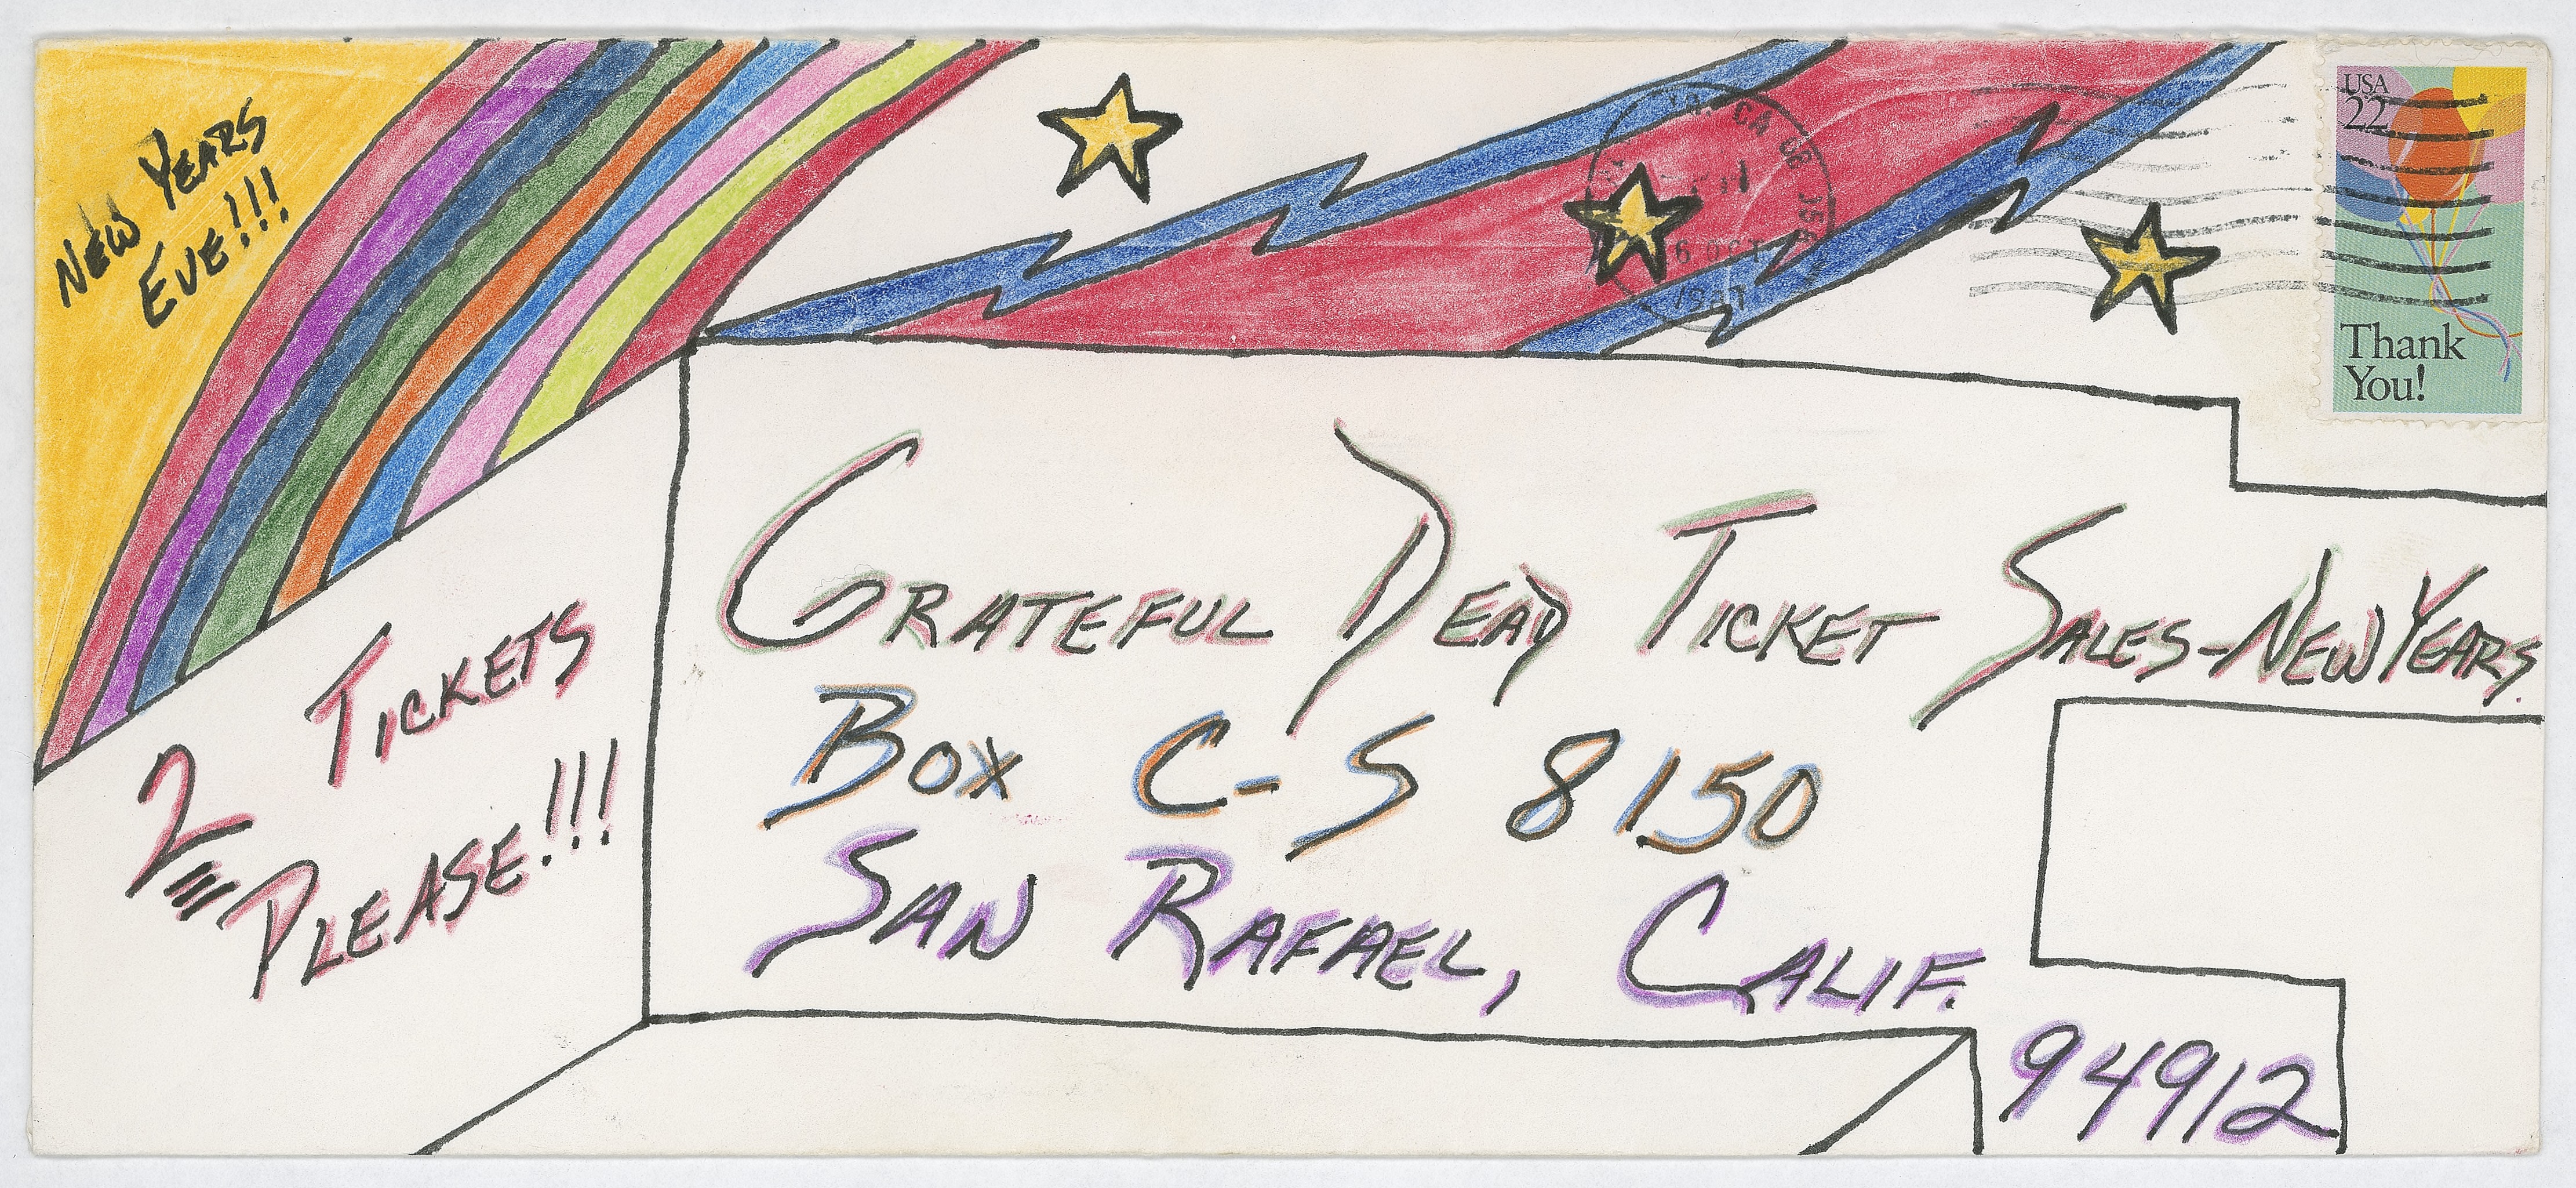 NEW YEARS
EVE!!!
USA
22
Thank
You!
CA
16 OCT
1987
2 TICKETS
PLEASE!!!
GRATEFUL DEAD TICKET SALES-NEW YEARS.
BOX C-S 8150
SAN RAFAEL, CALIF.
94912